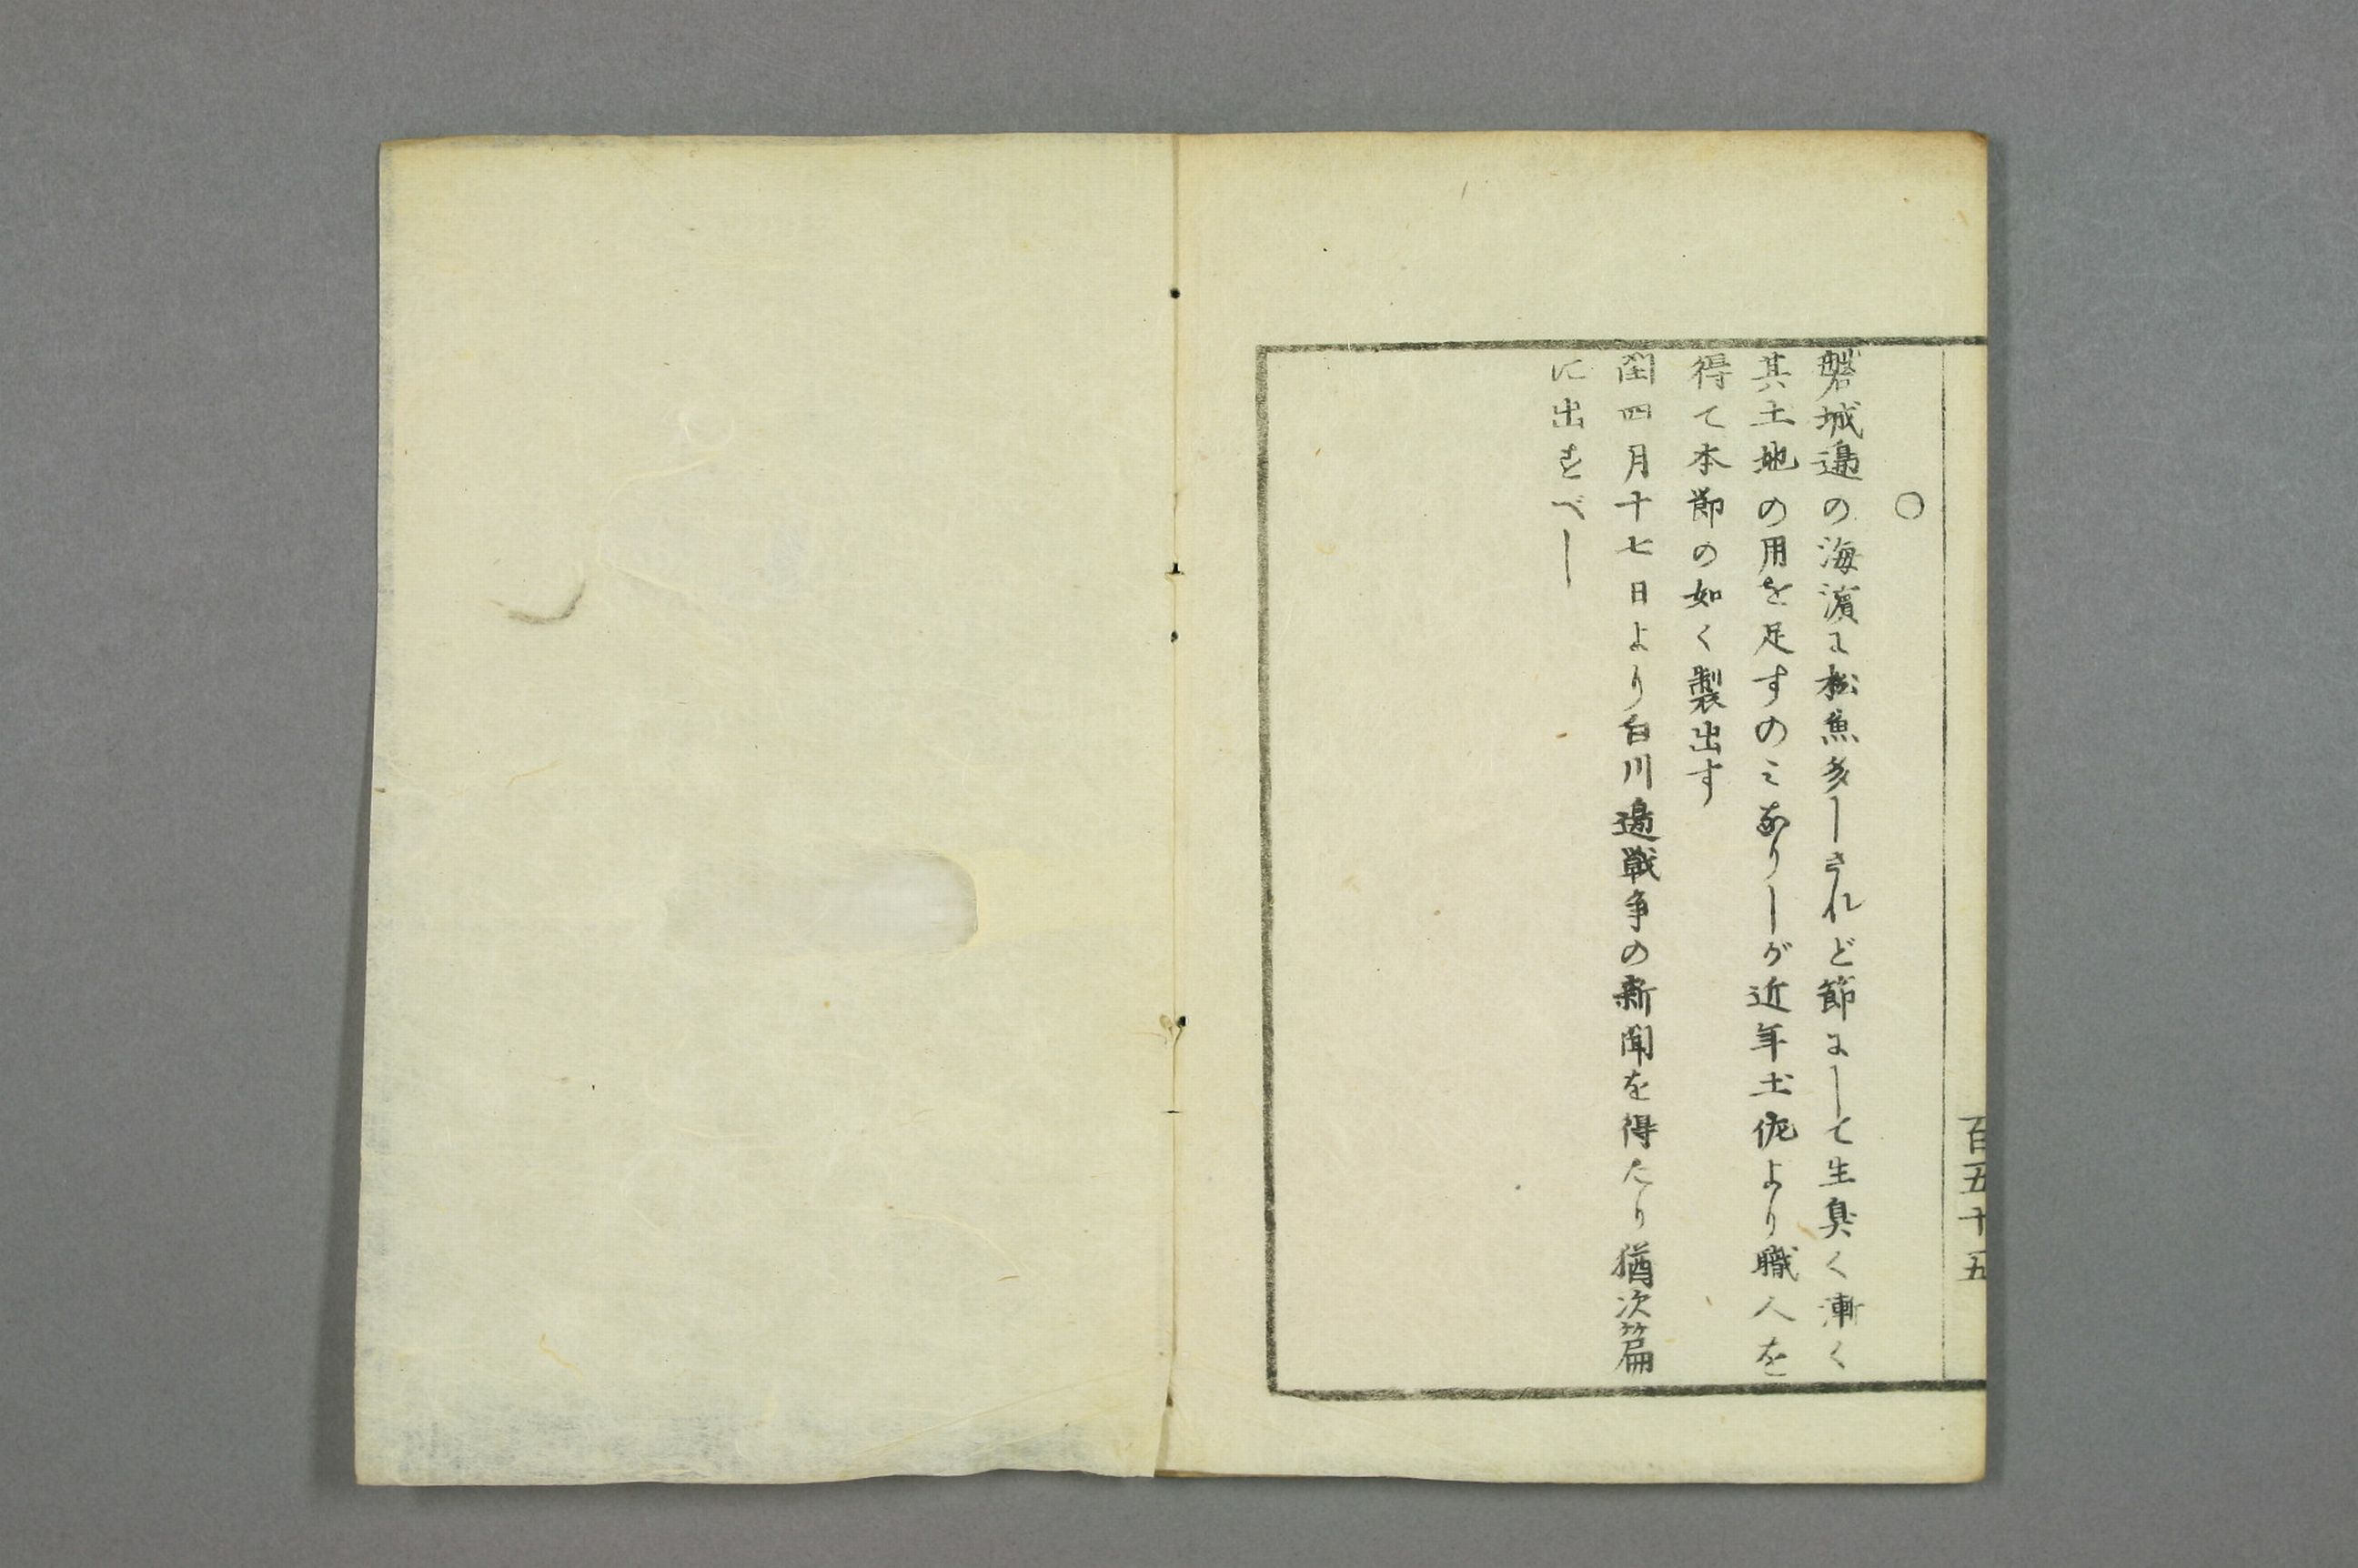 百五十五
○
磐城邉の海濵に松魚多しされど節にして生臭く漸く
其土地の用を足すのミなりしが近年土佐より職人を
得て本節の如く製出す
閏四月十七日より白川邉戦争の新聞を得たり猶次篇
に出すべし